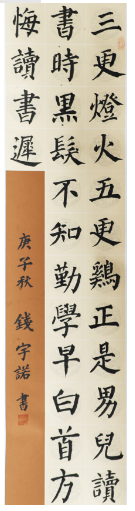 三更燈火五更鷄正是男兒讀
書時黒髮不知勤學早白首方
悔讀書遲
庚子秋 錢宇諾書